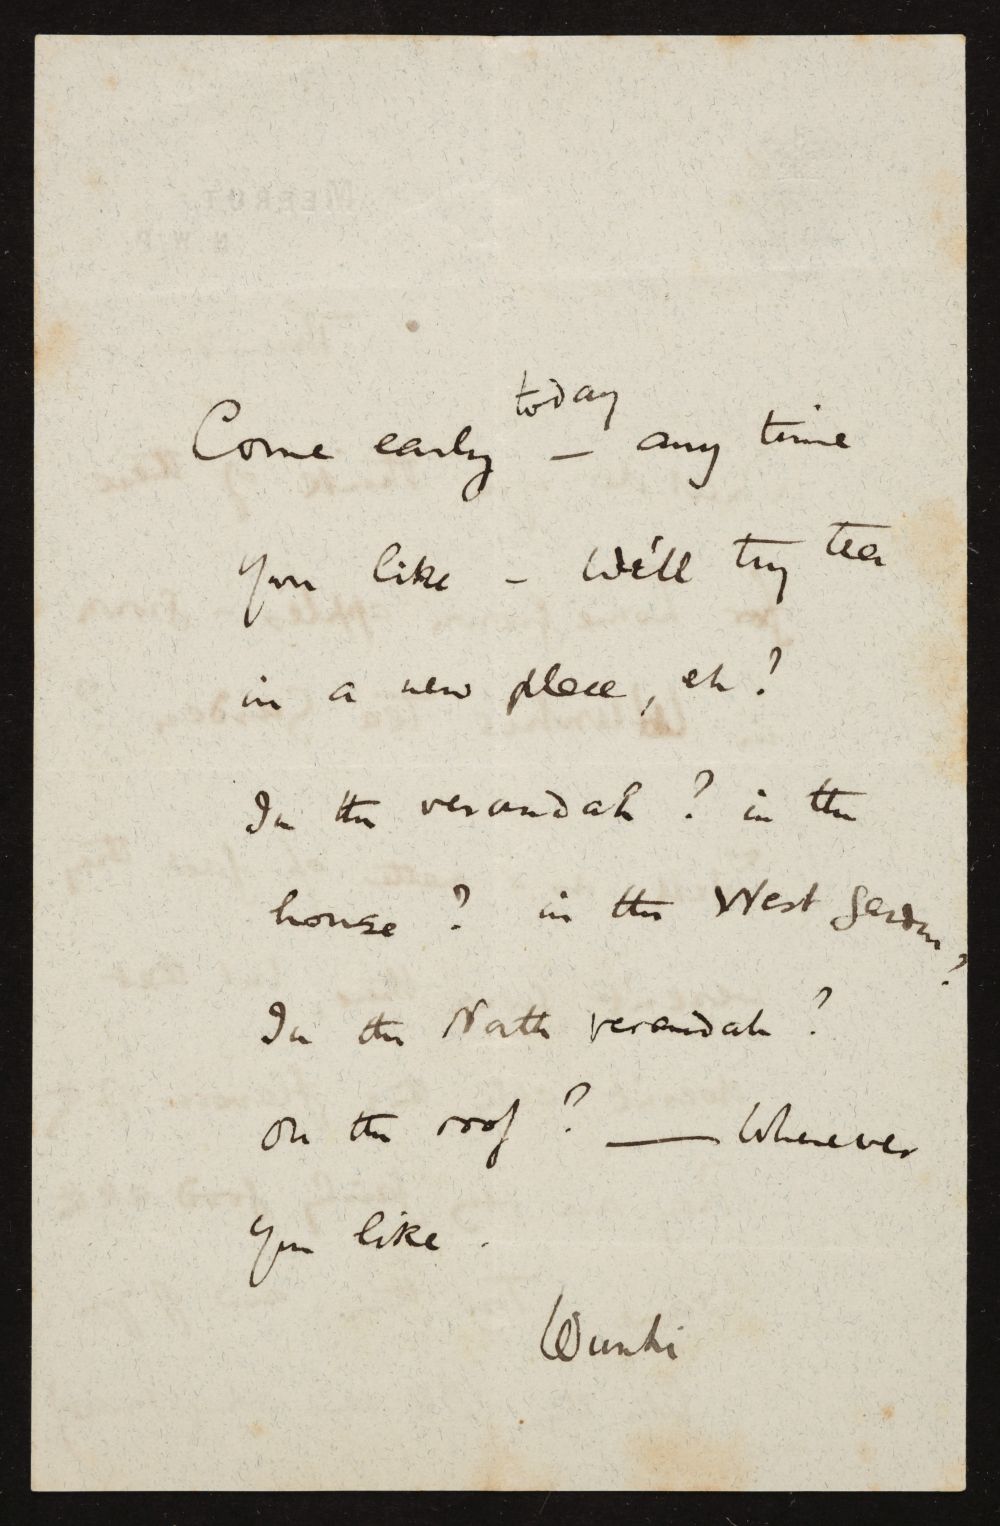 Come early today – any time
you like – We'll try tea
in a new place, eh?
In the verandah? in the
house? in the West garden?
In the North verandah?
on the roof? — Wherever
you like.